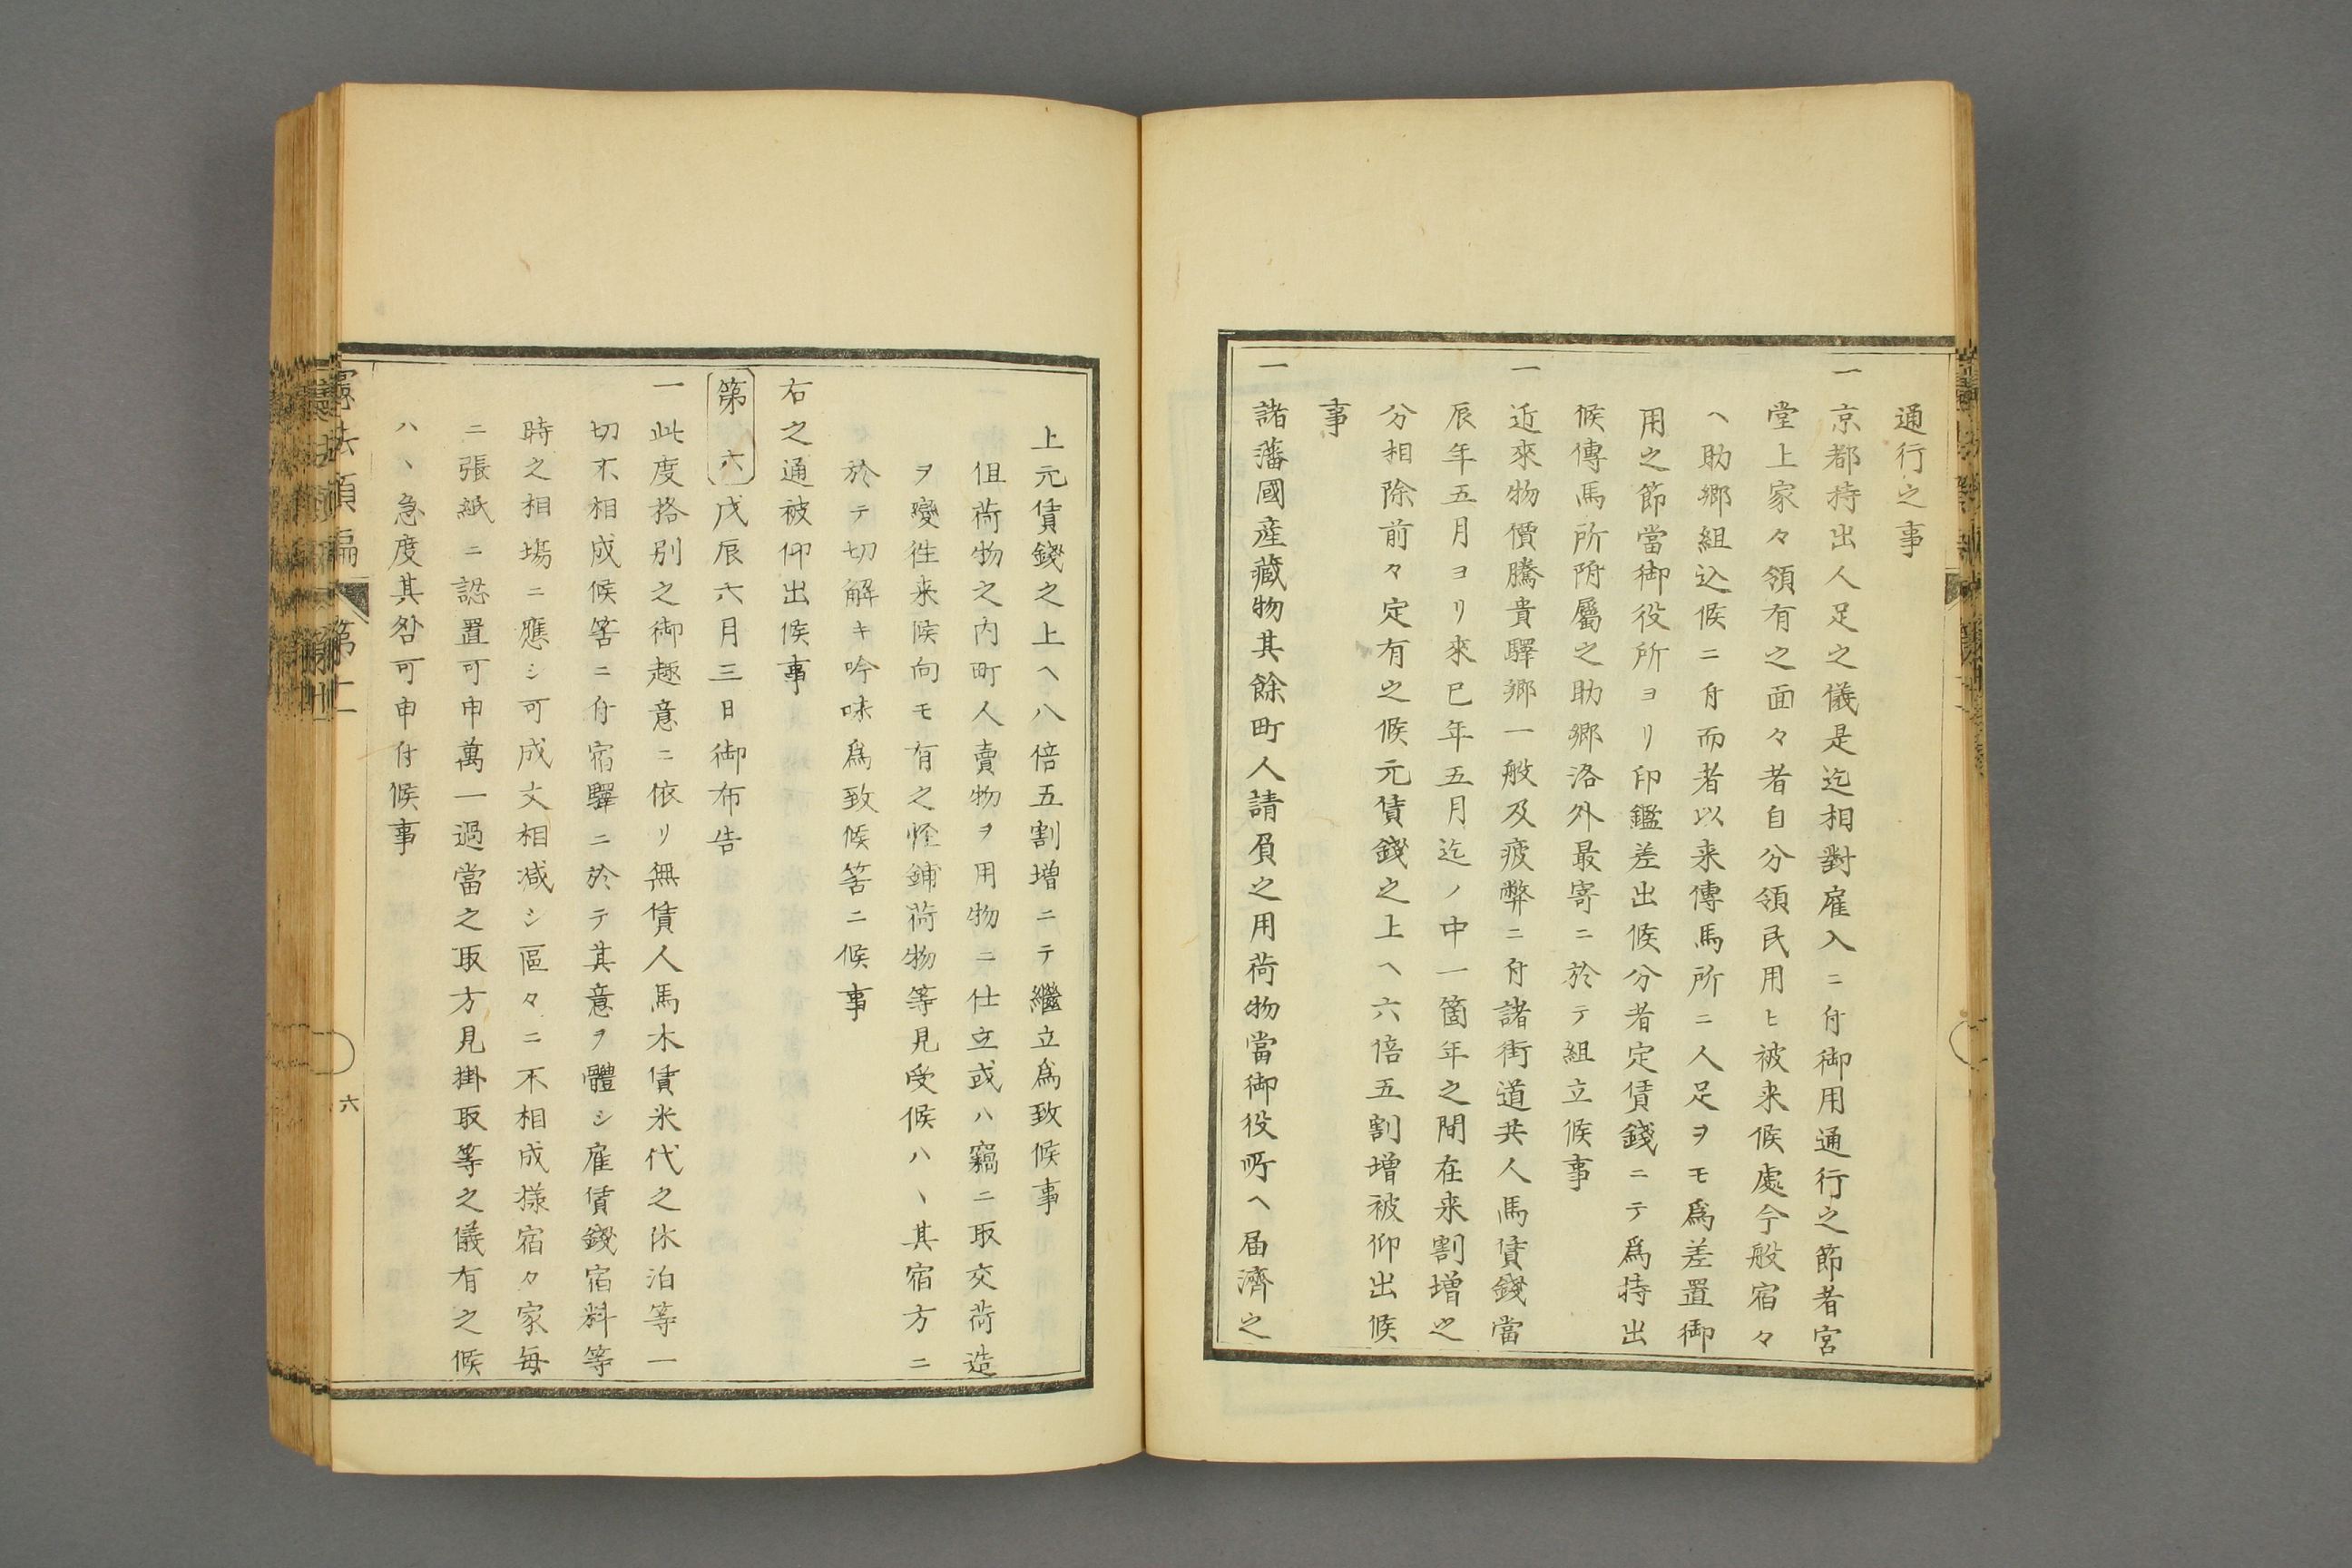 通行之事
一京都持出人足之儀是迄相對雇入ニ付御用通行之節者宮
堂上家々領有之面々者自分領民用ヒ被来候處今般宿々
ヘ助郷組込候ニ付而者以来傳馬所ニ人足ヲモ爲差置御
用之節當御役所ヨリ印鑑差出候分者定賃錢ニテ爲持出
候傳馬所附屬之助郷洛外最寄ニ於テ組立候事
一近來物價騰貴驛郷一般及疲弊ニ付諸街道共人馬賃錢當
辰年五月ヨリ來巳年五月迄ノ中一箇年之間在来割増之
分相除前々定有之候元賃錢之上ヘ六倍五割増被仰出候
事
一諸藩國産藏物其餘町人請負之用荷物當御役所ヘ届濟之
上元賃錢之上ヘ八倍五割増ニテ繼立爲致候事
伹荷物之内町人賣物ヲ用物ニ仕立或ハ竊ニ取交荷造
ヲ變徃来候向モ有之怪鋪荷物等見受候ハヽ其宿方ニ
於テ切解キ吟味爲致候筈ニ候事
右之通被仰出候事
第六 戊辰六月三日御布告
一此度格別之御趣意ニ依リ無賃人馬木賃米代之休泊等一
切不相成候筈ニ付宿驛ニ於テ其意ヲ體シ雇賃錢宿料等
時之相場ニ應シ可成丈相減シ區々ニ不相成樣宿々家毎
ニ張紙ニ認置可申萬一過當之取方見掛取等之儀有之候
ハヽ急度其咎可申付候事
六